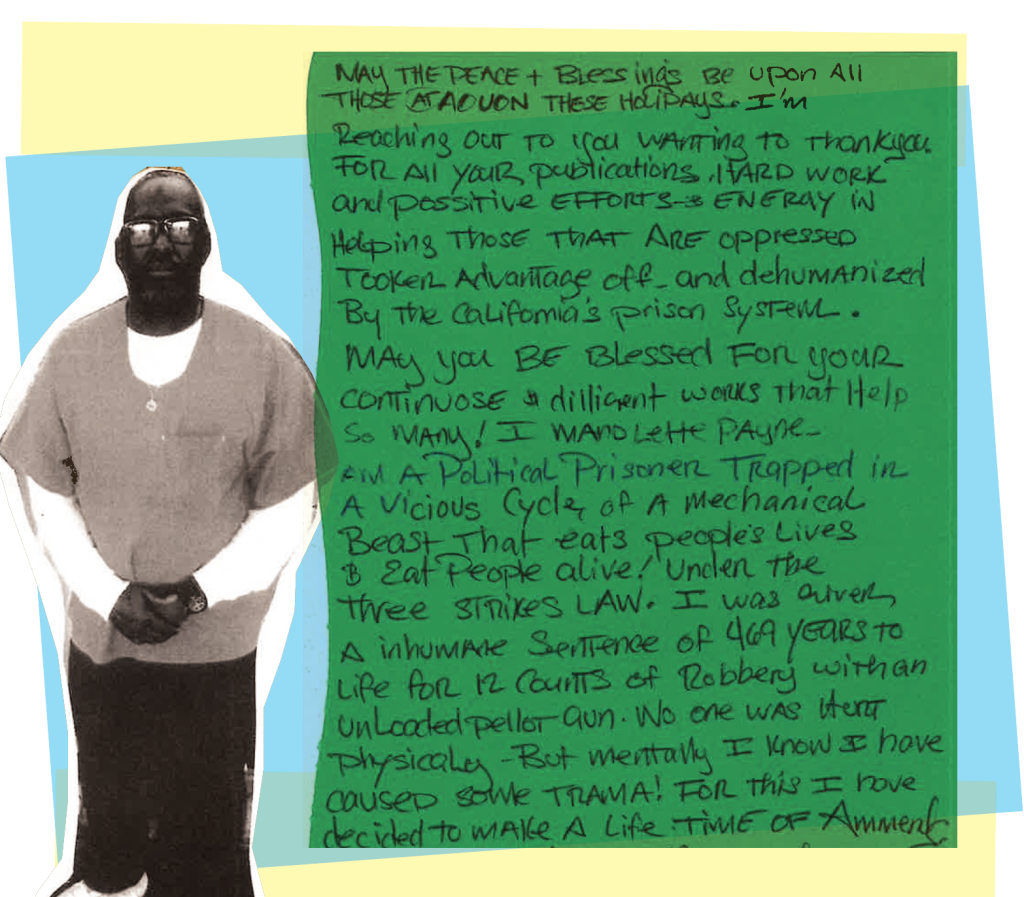 MAY THE PEACE + Blessings BE upon All
THOSE AT AOUON THESE HOLIDAYS. I'm
Reaching OUT TO you WANTing TO Thankyou
FOR All YOUR publications, HARD WORK
and possitive EFFORTS & ENERGY IN
Helping THOSE THAT ARE oppressed
TOOKEN Advantage off - and dehumanized
By The California's prison System.
MAY you BE Blessed FOR YOUR
CONTINUOSE & dilligent works That Help
So MANY! I MANOLette PAYNE -
AM A Political Prisoner Trapped in
A Vicious Cycle of A mechanical
Beast That eats people's Lives
& Eat People alive! Under the
three STRIKES LAW. I was given
A inhumane Sentence of 469 YEARS TO
Life for 12 Counts of Robbery with an
UnLoaded pellot Gun. No one was Hurt
physicaly - But mentally I know I have
caused some TRAMA! FOR this I have
decided to MAKE A Life TIME OF